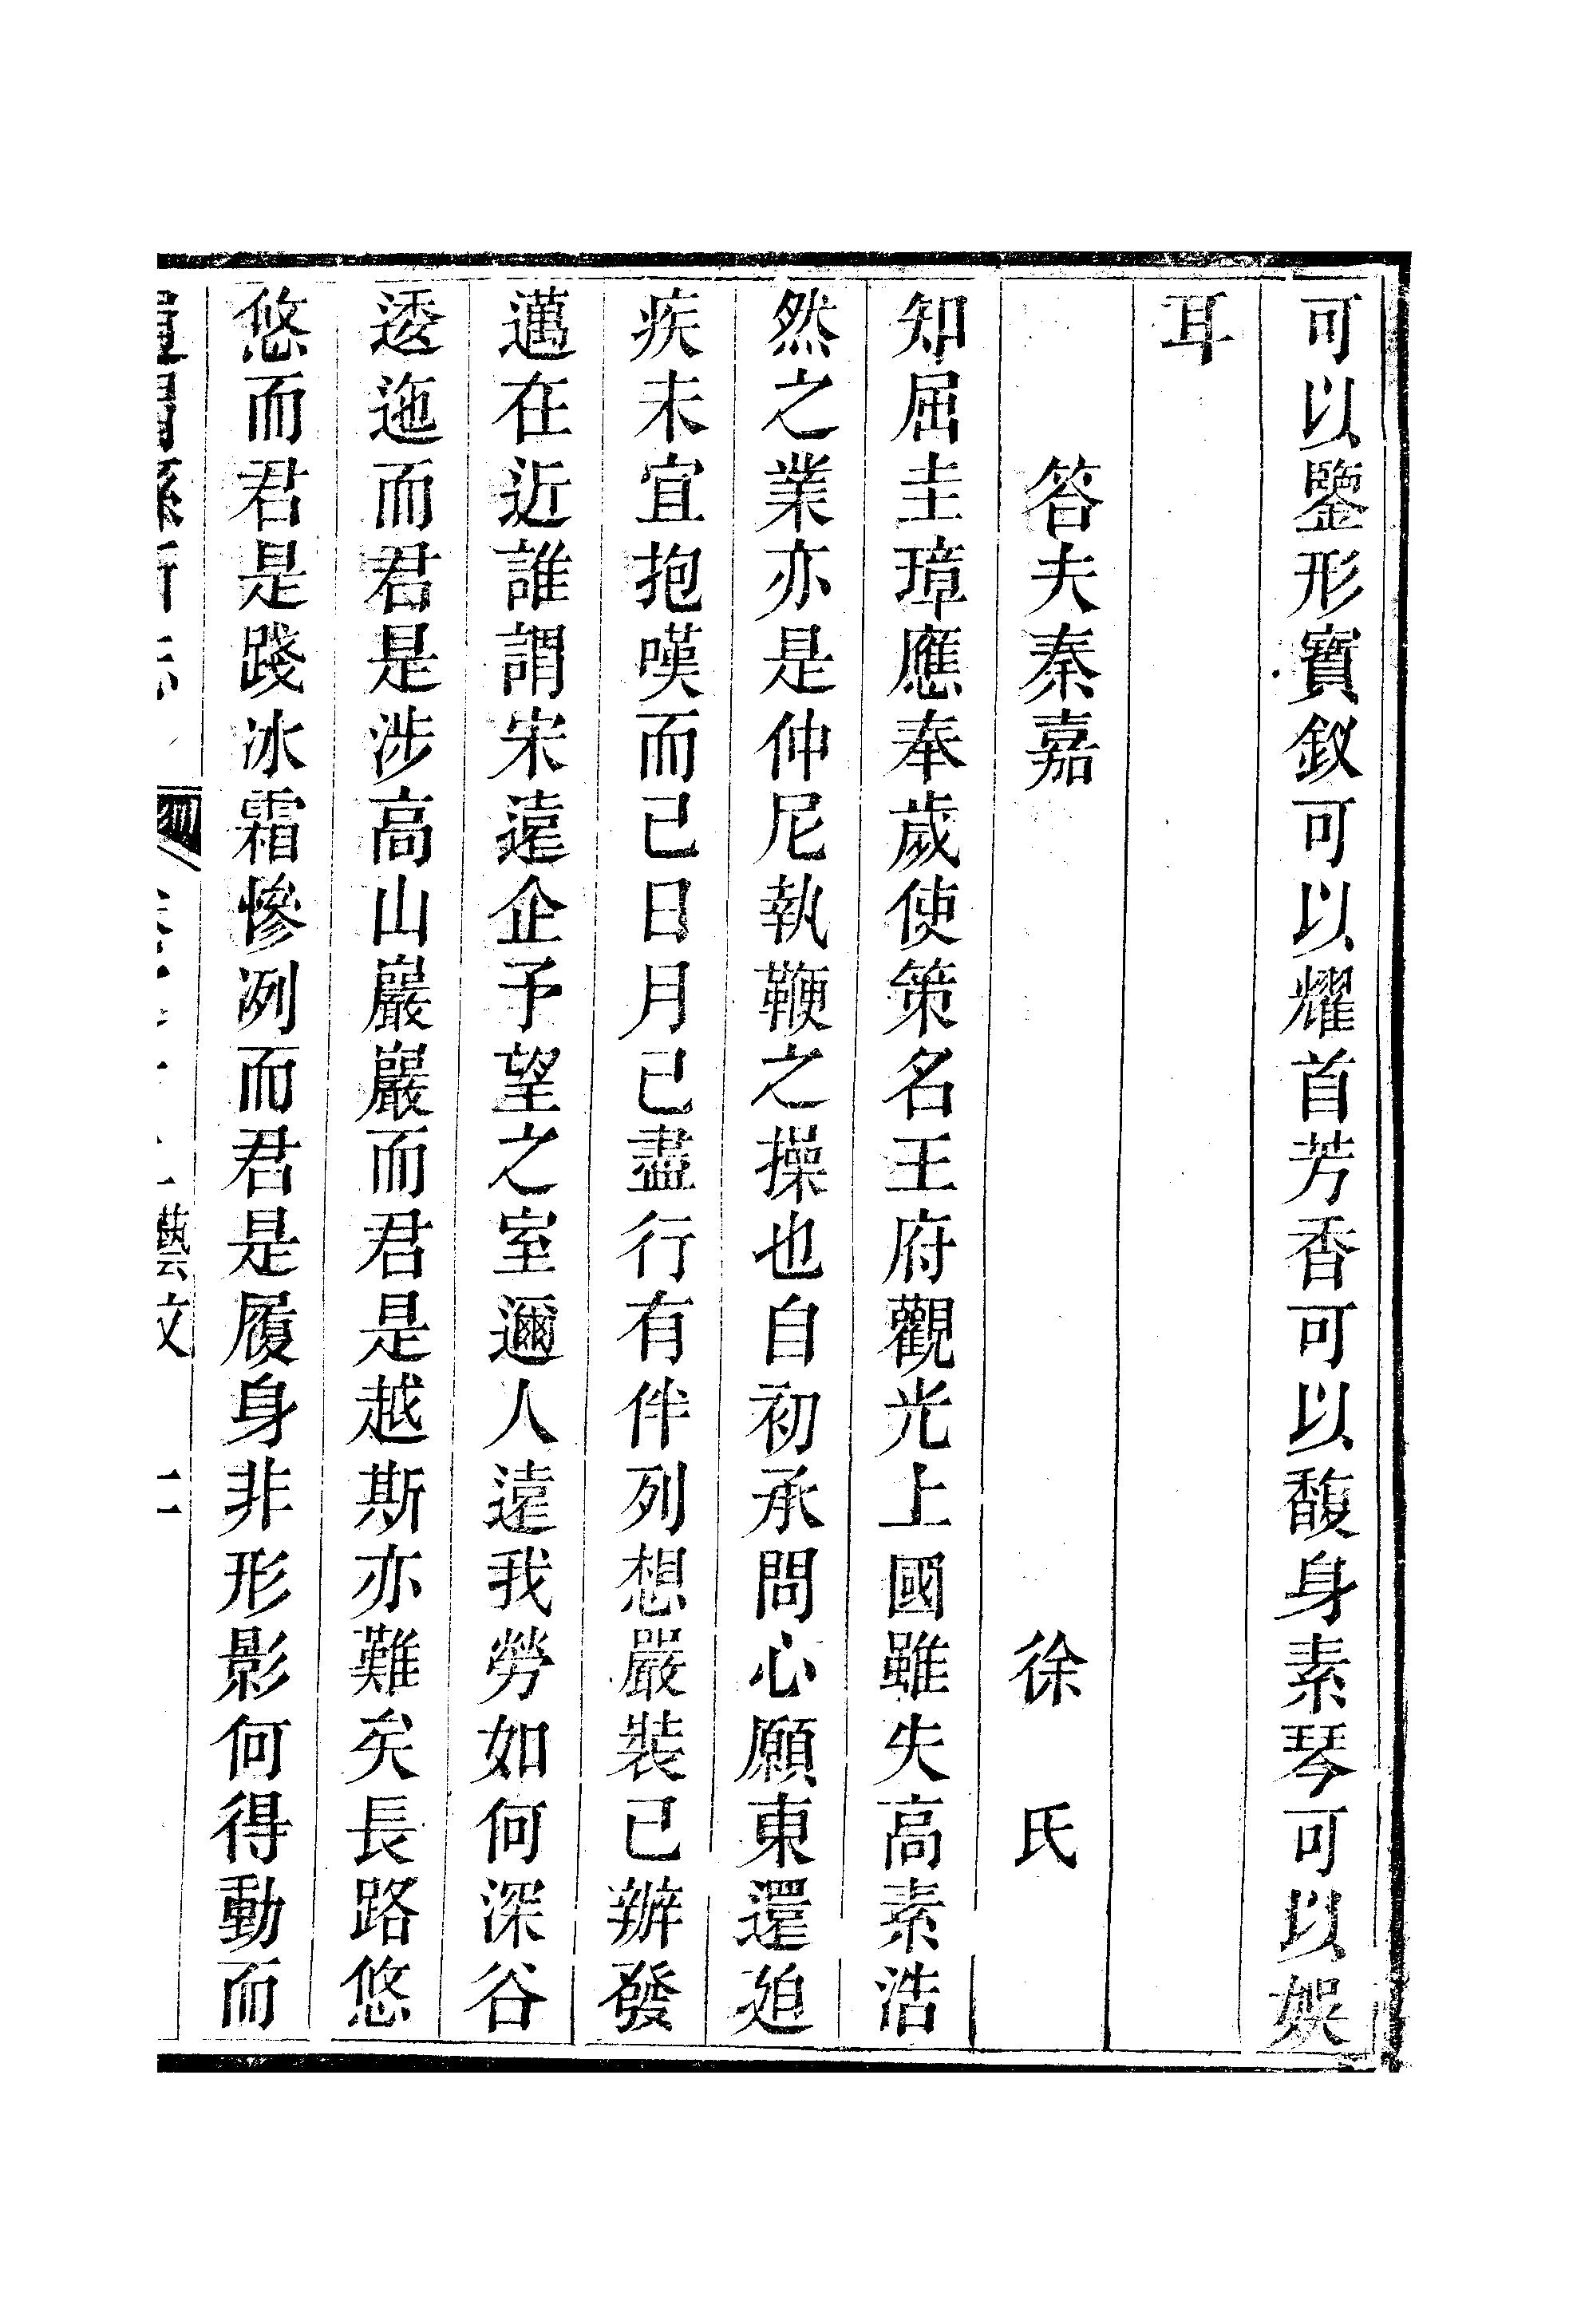 可以鑒形寶釵可以耀首芳香可以馥身素琴可以娛
耳
答夫秦嘉　徐氏
知屈圭璋應奉歲使策名王府觀光上國雖失高素浩
然之業亦是仲尼執鞭之操也自初承問心願東還廹
疾未宜抱嘆而已日月已盡行有伴列想嚴裝已辦發
邁在近誰謂宋遠企予望之室邇人遠我勞如何深谷
逶迤而君是涉高山巖巖而君是越斯亦難矣長路悠
悠而君是踐冰霜慘冽而君是履身非形影何得動而
藝文